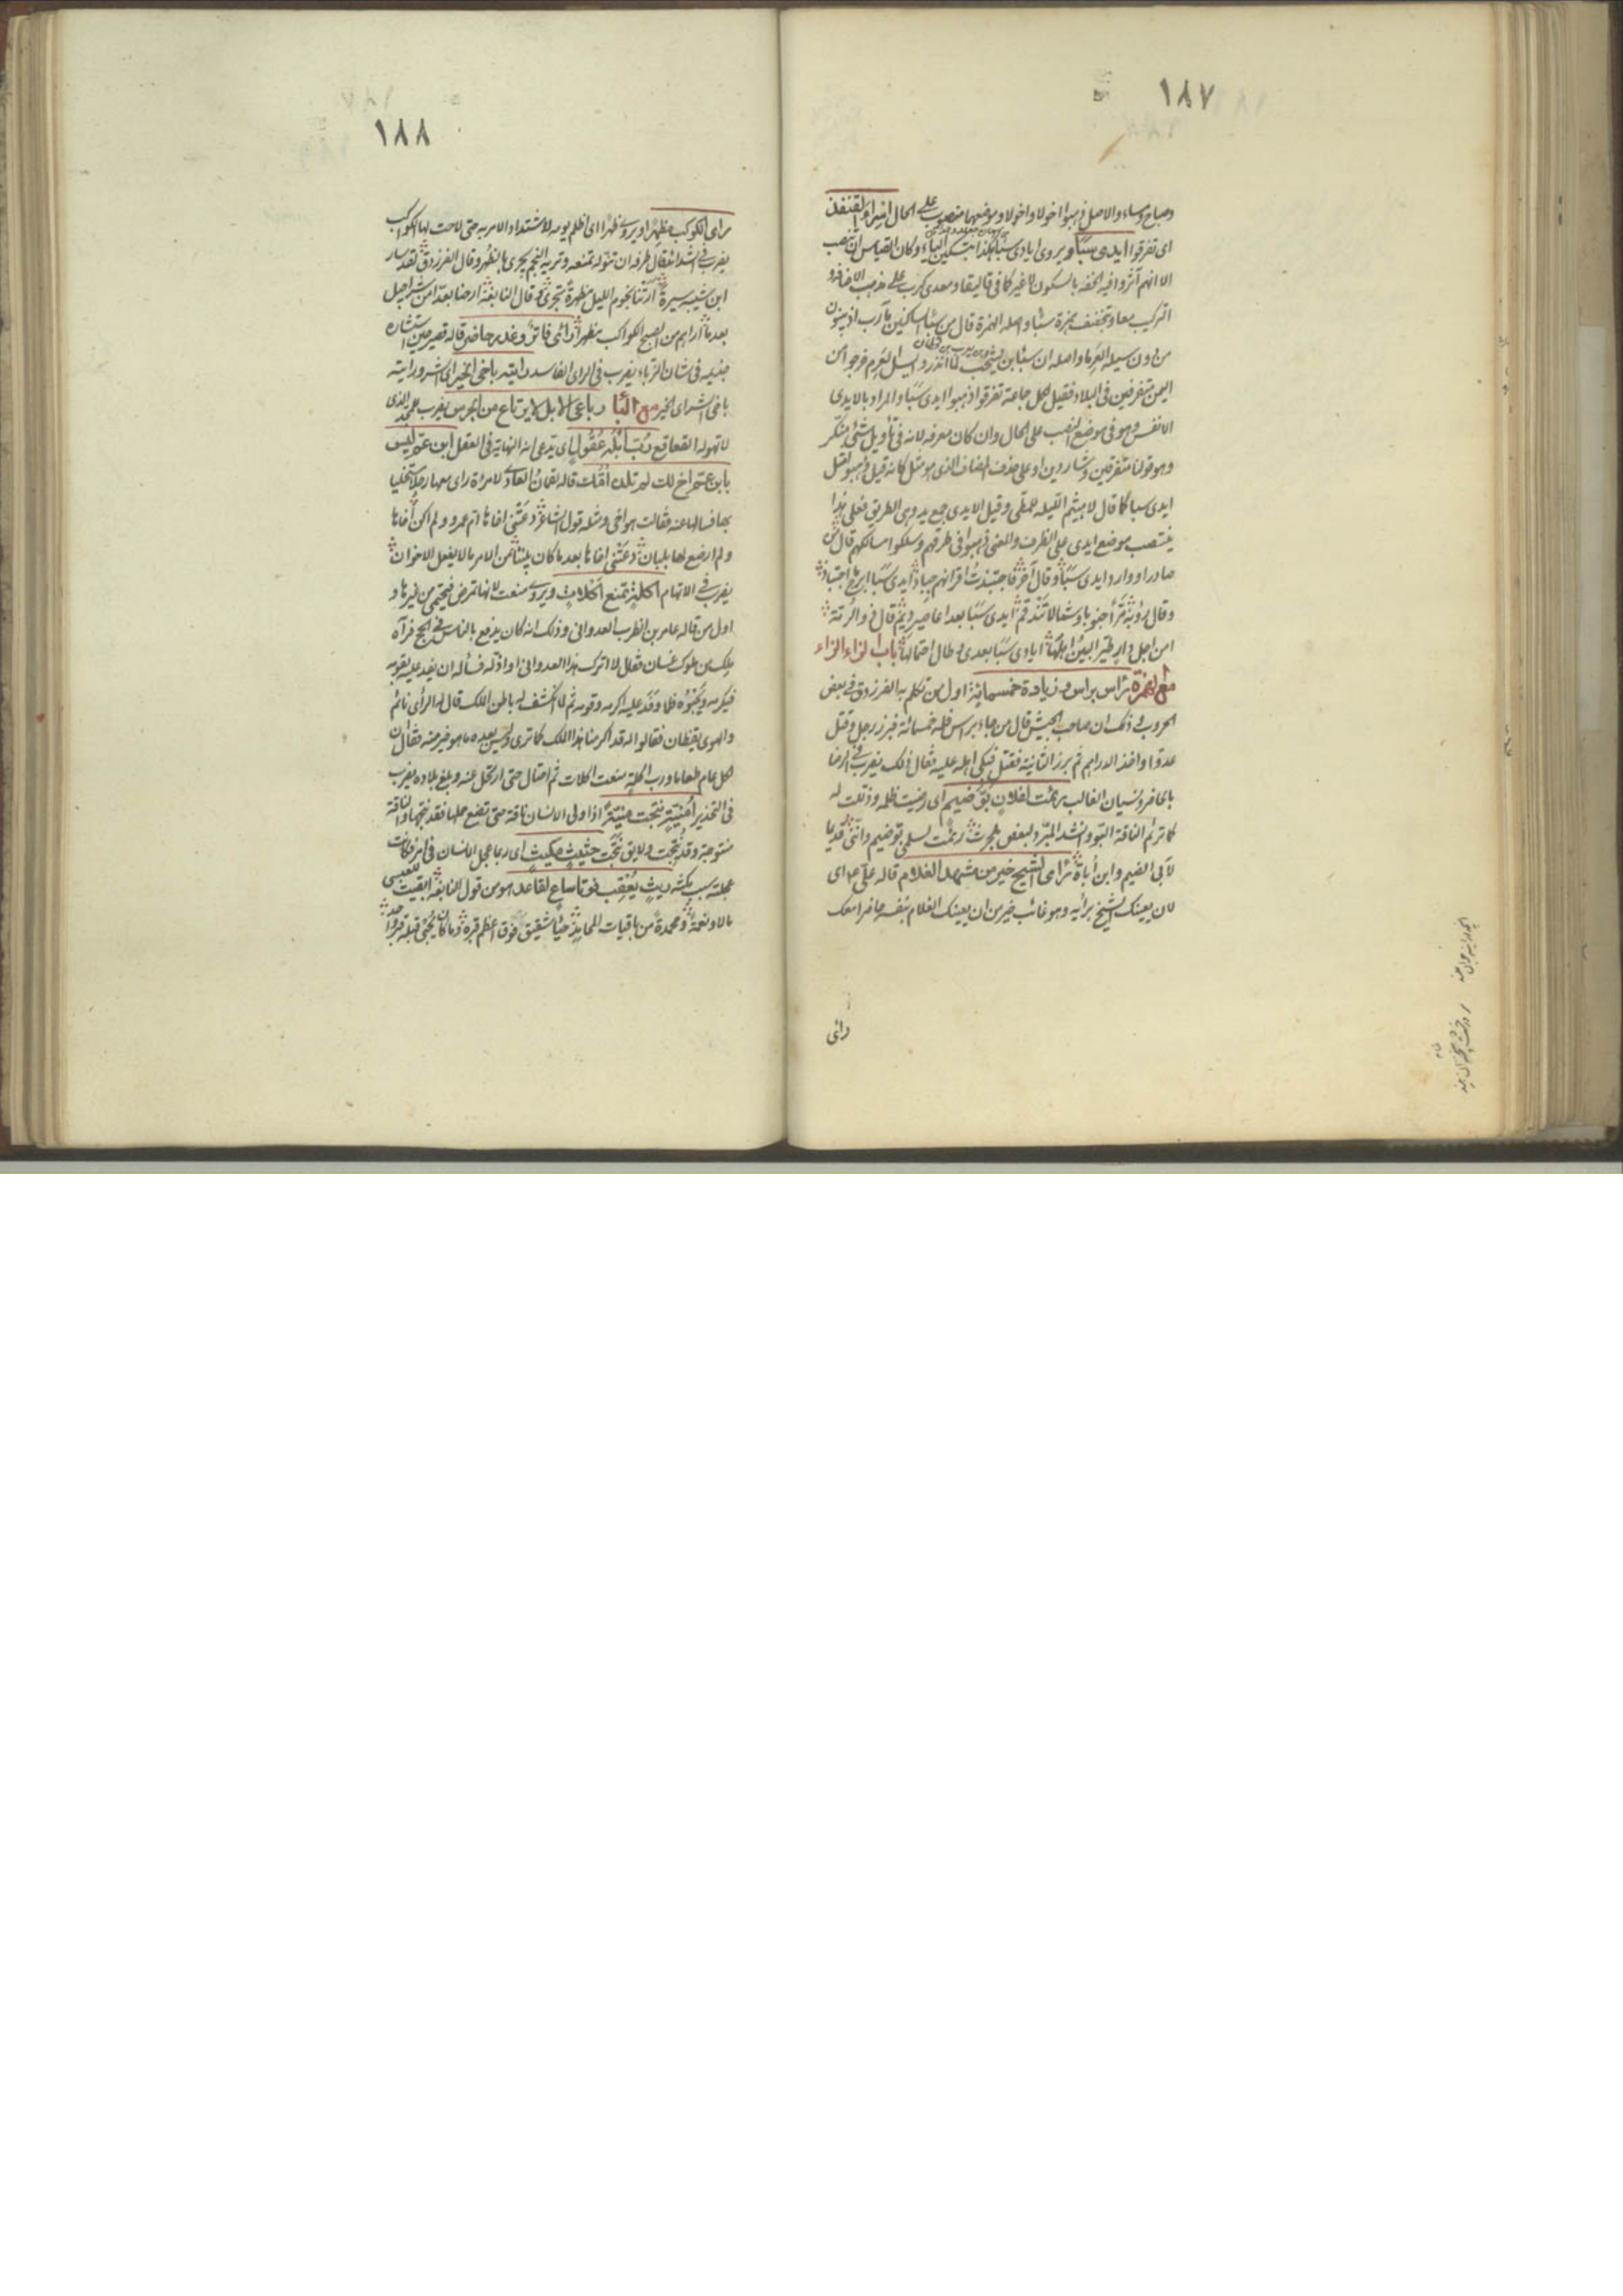 ١٨٧
وصباح ومساء والاصل ذهبوا اخولا واخولا وموضعهما منصوب على الحال اسرار القنفذ
اى تفرقوا ايدى سبا ويروى ايادى سبا هكذا بتسكين الياء وكان القياس ان تنصب
الا انهم آثروا فيه الخفه بالسكون لا غير كما فى قاليقلا ومعدى كرب على مذهب الاضافة و
التركيب معا وتخفف همزة سبا واصله الهمزة قال من سبأ الساكنين مأرب اذ يبنون
من دون سيله العرما واصله ان سبا بن يشجب لما انذروا بسيل العرم خرجوا من
اليمن متفرقين فى البلاد فقيل لكل جماعة تفرقوا ذهبوا ايدى سبا والمراد بالايدى
الانفس وهو فى موضع النصب على الحال وان كان معرفه لانه فى تأويل شئ منكر
وهو قولنا متفرقين وشاردين او على حذف المضاف الذى هو مثل كانه قيل ذهبوا مثل
ايدى سبا كما قال لا هيثم الليله للمطى وقيل الايدى جمع يد وهى الطريق فعلى هذا
ينتصب موضع ايدى على الظرف والمعنى ذهبوا فى طرقهم وسلكوا مسالكهم قال
صادرا ووارد ايدى سبا وقال آخر فاجتبذت اقرانهم جباذ ايدى سبا ابرح ما اجتباذ
وقال رؤبة مرا جنوبا وشمالا تندقم ايدى سبا بعد اعاصير ديم قال ذو الرمة
امن اجل دار طير البين اهلها ايادى سبا بعدى وطال احتمالها باب الراء الراء
مع الهمزة رأس برأس وزيادة خمسمائة اول من تكلم به الفرزدق فى بعض
الحروب وذلك ان صاحب الجيش قال من جاء براس فله خمسمائة فبرز رجل وقتل
عدوا واخذ الدراهم ثم برز الثانية فقتل فبكى اهله عليه فقال ذلك يضرب فى الرضا
بالحاضر ونسيان الغائب رئمت لفلان بو ضيم اى رضيت ظلمه وذللت له
كما ترئم الناقة البو وانشد المبرد لبعض بلحرث رئمت لسلمى بو ضيم وانى قديما
لآبى الضيم وابن أباة رأى الشيخ خير من مشهد الغلام قاله على ع م اى
لان يعينك الشيخ برأيه وهو غائب خير من ان يعينك الغلام بنفسه حاضرا معك
رأى
١٨٨
رأى الكوكب مظهرا ويروى ظهرا اى اظلم يومه لاشتداد الامر به حتى لاحت لها الكواكب
يضرب فى الشدائد قال طرفه ان تنوله تمنعه وتريه النجم يجرى بالظهر وقال الفرزدق لقد سار
ابن شيبه سيرة ارتنا نجوم الليل مظهرة تجرى وقال النابغة ارضا بعدا من شراحيل
بعدما اراهم من الصبح الكواكب مظهرا رأى فاتر وغدر حاضر قاله قصير حين استشاره
جذيمه فى شان الزباء يضرب فى الراى الفاسد رايته باخى الخير اى بشر ورايته
باخى الشر اى الخير مع البا رباعى الابل لا يرتاع من الجرس يضرب للمجد الذى
لا تهوله القعاقع رب ابله عقول اى يدعى انه النهاية فى العقل رب ابن عم ليس
بابن عم رب اخ لك لم تلده امك قاله لقمان العادى لامراة راى معها رجلا مستخليا
بها فسالها عنه فقالت هو اخى ومثله قول الشاعر دعتنى اخاها ام عمرو ولم اكن اخاها
ولم ارضع لها بلبان دعتنى اخاها بعد ما كان بيننا من الامر ما لا يفعل الاخوان
يضرب فى الاتهام رب اكلة تمنع اكلات ويروى منعت لانها تمرض فيحتمى من غيرها و
اول من قاله عامر بن الظرب العدوانى وذلك انه كان يدفع بالناس فى الحج فرآه
ملك من ملوك غسان فقال لا اترك هذا العدوانى او اذله فسأله ان يفد عليه بقومه
فيكرمه ويحبوه فلما وفد عليه اكرمه وقومه ثم لما انكشف له باطن الملك قال لهم الرأى نائم
والهوى يقظان فقالوا له قد اكرمنا هذا الملك كما ترى وليس بعده ما هو خير منه فقال ان
لكل عام طعاما ورب اكله منعت اكلات ثم احتال حتى ارتحل عنه وبلغ بلاده يضرب
فى التحذير رب امنية نتجت منية اذا ولى الانسان ناقة حتى تضع حملها فقد نتجها والناقة
منتوجة وقد نتجت ولا يقال نتجت رب حثيث مكيث اى ربما عجل الانسان فى امر فكانت
عجلته سبب مكثه ريث يعقب فوتا ساع لقاعد هو من قول النابغه ابقيت للعبسى
مالا ونعمة ومحمدة من باقيات المحامد حباء شقيق فوق اعظم قبره وما كان يحبى قبله قبر وافد